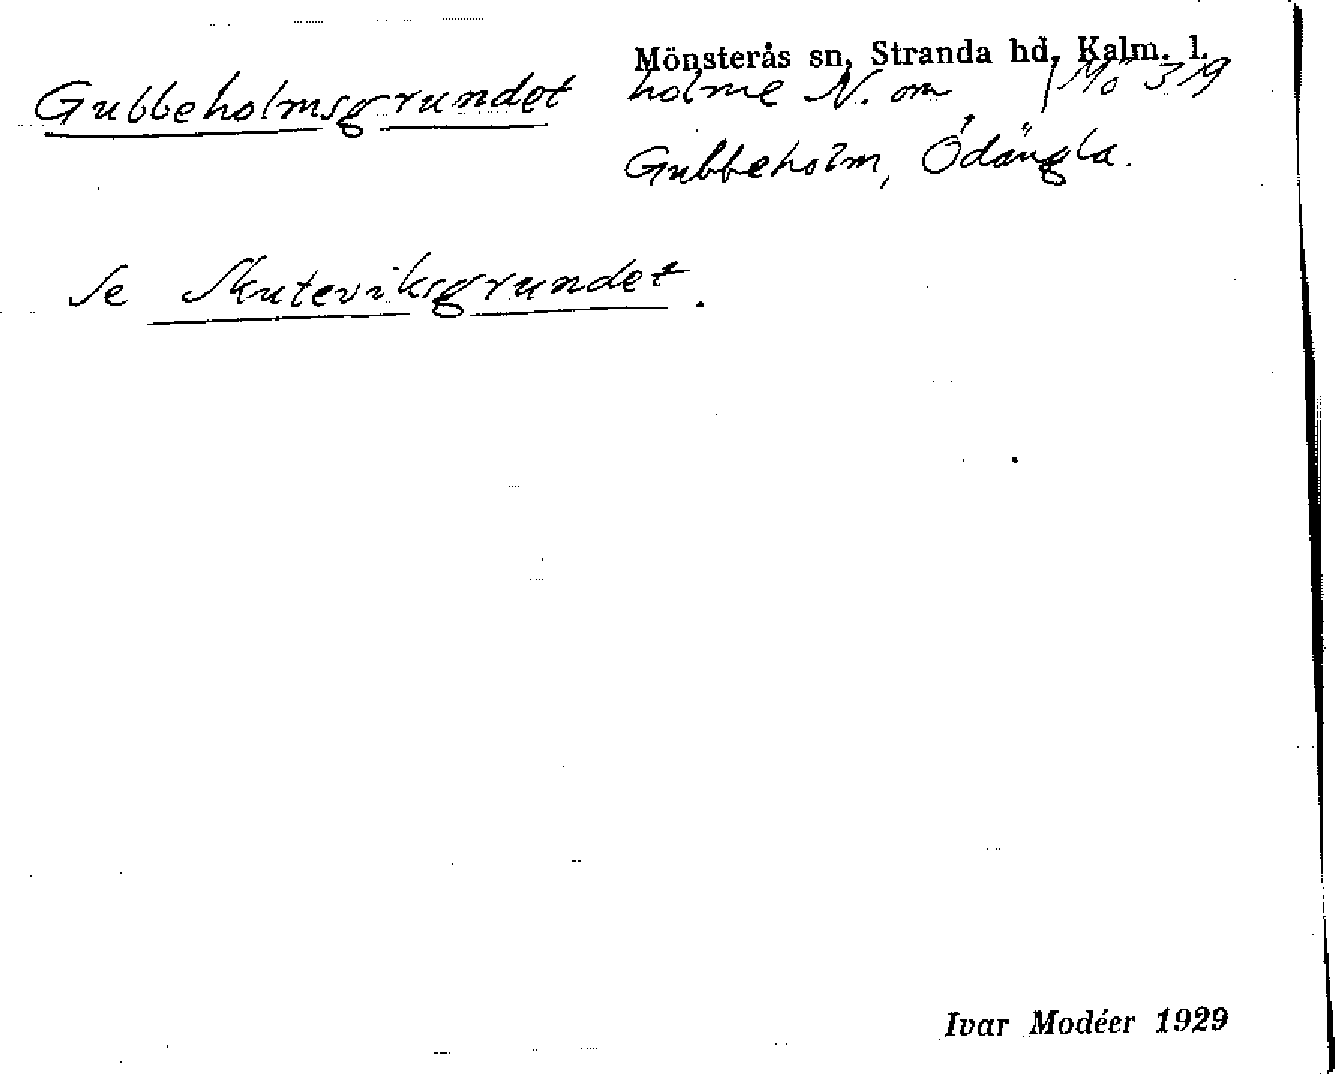 Mönsterås sn, Stranda hd, Kalm. l.
Gubbeholmsgrundet holme N. om / Mö 319
Gubbeholm, Ödängla.
Se Skuteviksgrundet.
Ivar Modéer 1929